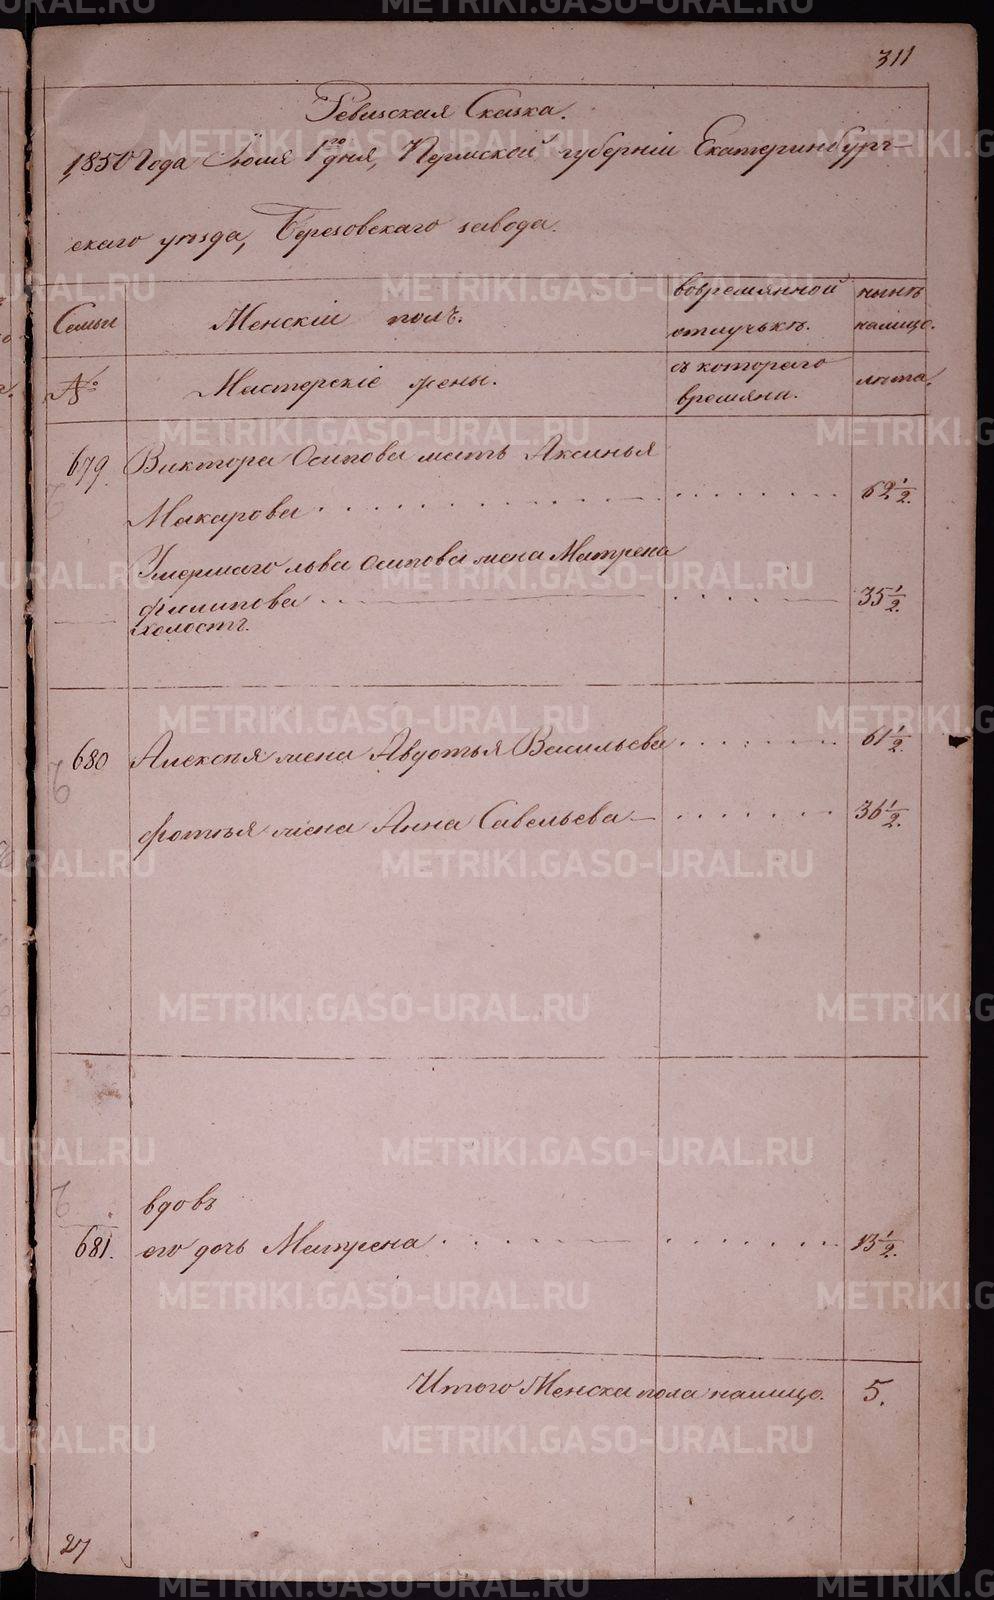 311
Ревизская Сказка.
1850 Года Июля 1го дня, Пермской губерніи Екатеринбург-
скаго уѣзда, Березовскаго завода.
Семьи
Женскій полъ.
вовремянной отлучькѣ.
нынѣ налицо.
№
Мастерскіе жены.
съ котораго времяни.
лѣта.
679.
Виктора Осипова мать Аксинья
Макарова . . . . . . . . . . 62 1/2.
Умершаго Льва Осипова жена Матрена
Филипова . . . . . . 35 1/2.
холостъ.
680
Алексѣя жена Авдотья Васильева . . . . . . 61 1/2.
Фотѣя жена Анна Савельева — . . . . . . 36 1/2.
вдовъ
681.
его дочь Матрена . . . . . . . . . 13 1/2.
Итого Женска пола налицо. 5.
27
METRIKI.GASO-URAL.RU